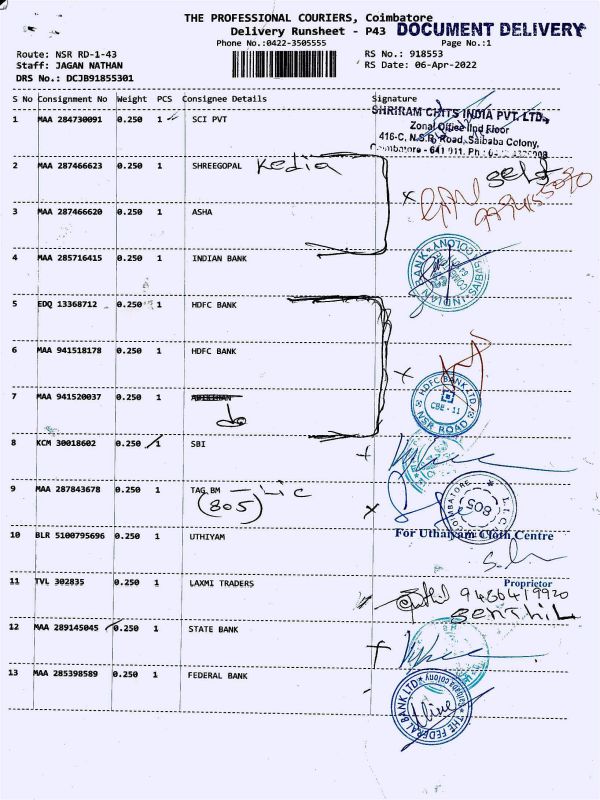 THE PROFESSIONAL COURIERS, Coimbatore
Delivery Runsheet - P43 DOCUMENT DELIVERY
Phone No.:0422-3505555 Page No.:1
Route: NSR RD-1-43 RS No.: 918553
Staff: JAGAN NATHAN RS Date: 06-Apr-2022
DRS No.: DCJB91855301
S No Consignment No Weight PCS Consignee Details Signature
1 MAA 284730091 0.250 1 SCI PVT
SHRIRAM CHITS INDIA PVT. LTD.,
Zonal Office IInd Floor
416-C, N.S.R. Road, Saibaba Colony,
Coimbatore - 641 011. Ph :
2 MAA 287466623 0.250 1 SHREEGOPAL Kedia
self
3 MAA 287466620 0.250 1 ASHA
4 MAA 285716415 0.250 1 INDIAN BANK
INDIAN BANK SAIBABA COLONY
5 EDQ 13368712 0.250 1 HDFC BANK
6 MAA 941518178 0.250 1 HDFC BANK
7 MAA 941520037 0.250 1 do
HDFC BANK LTD CBE - 11 NSR ROAD
8 KCM 30018602 0.250 1 SBI
9 MAA 287843678 0.250 1 TAG BM - Lic
(805)
COIMBATORE 805 L.I.C.
10 BLR 5100795696 0.250 1 UTHIYAM
For Uthaiyam Cloth Centre
Proprietor
11 TVL 302835 0.250 1 LAXMI TRADERS
9486419920
SENTHIL
12 MAA 289145045 0.250 1 STATE BANK
13 MAA 285398589 0.250 1 FEDERAL BANK
THE FEDERAL BANK LTD Saibaba colony